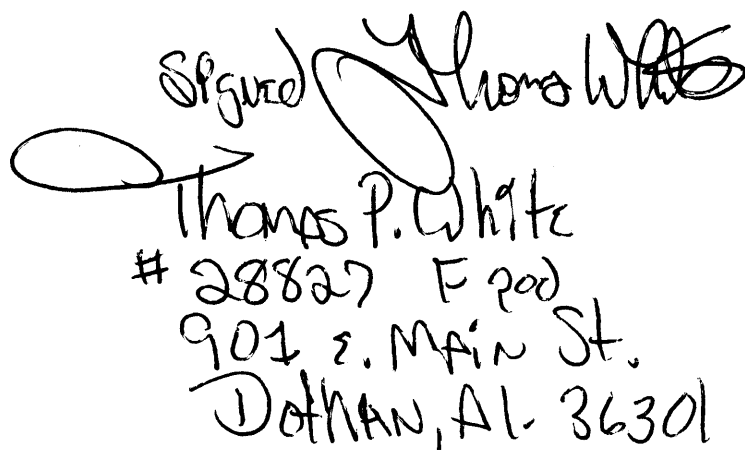 Signed Thomas White
Thomas P. White
# 28827 F pod
901 E. Main St.
Dothan, Al. 36301